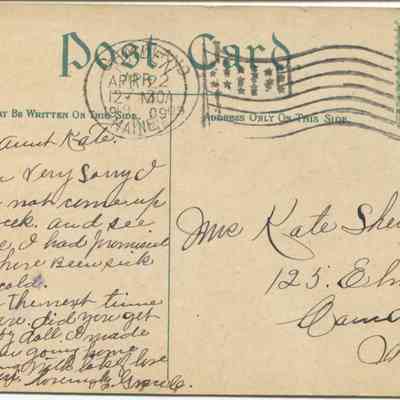 Post Card
CAMDEN
APR 12
12 - M
1909
MAINE
AY BE WRITTEN ON THIS SIDE.
ADDRESS ONLY ON THIS SIDE.
Aunt Kate.
Very Sorry I
not come up
and see
I had promised
Been sick
cold.
The next time
did you get
doll I made
going home
love
lovingly
Mrs Kate She
125. El
Cam